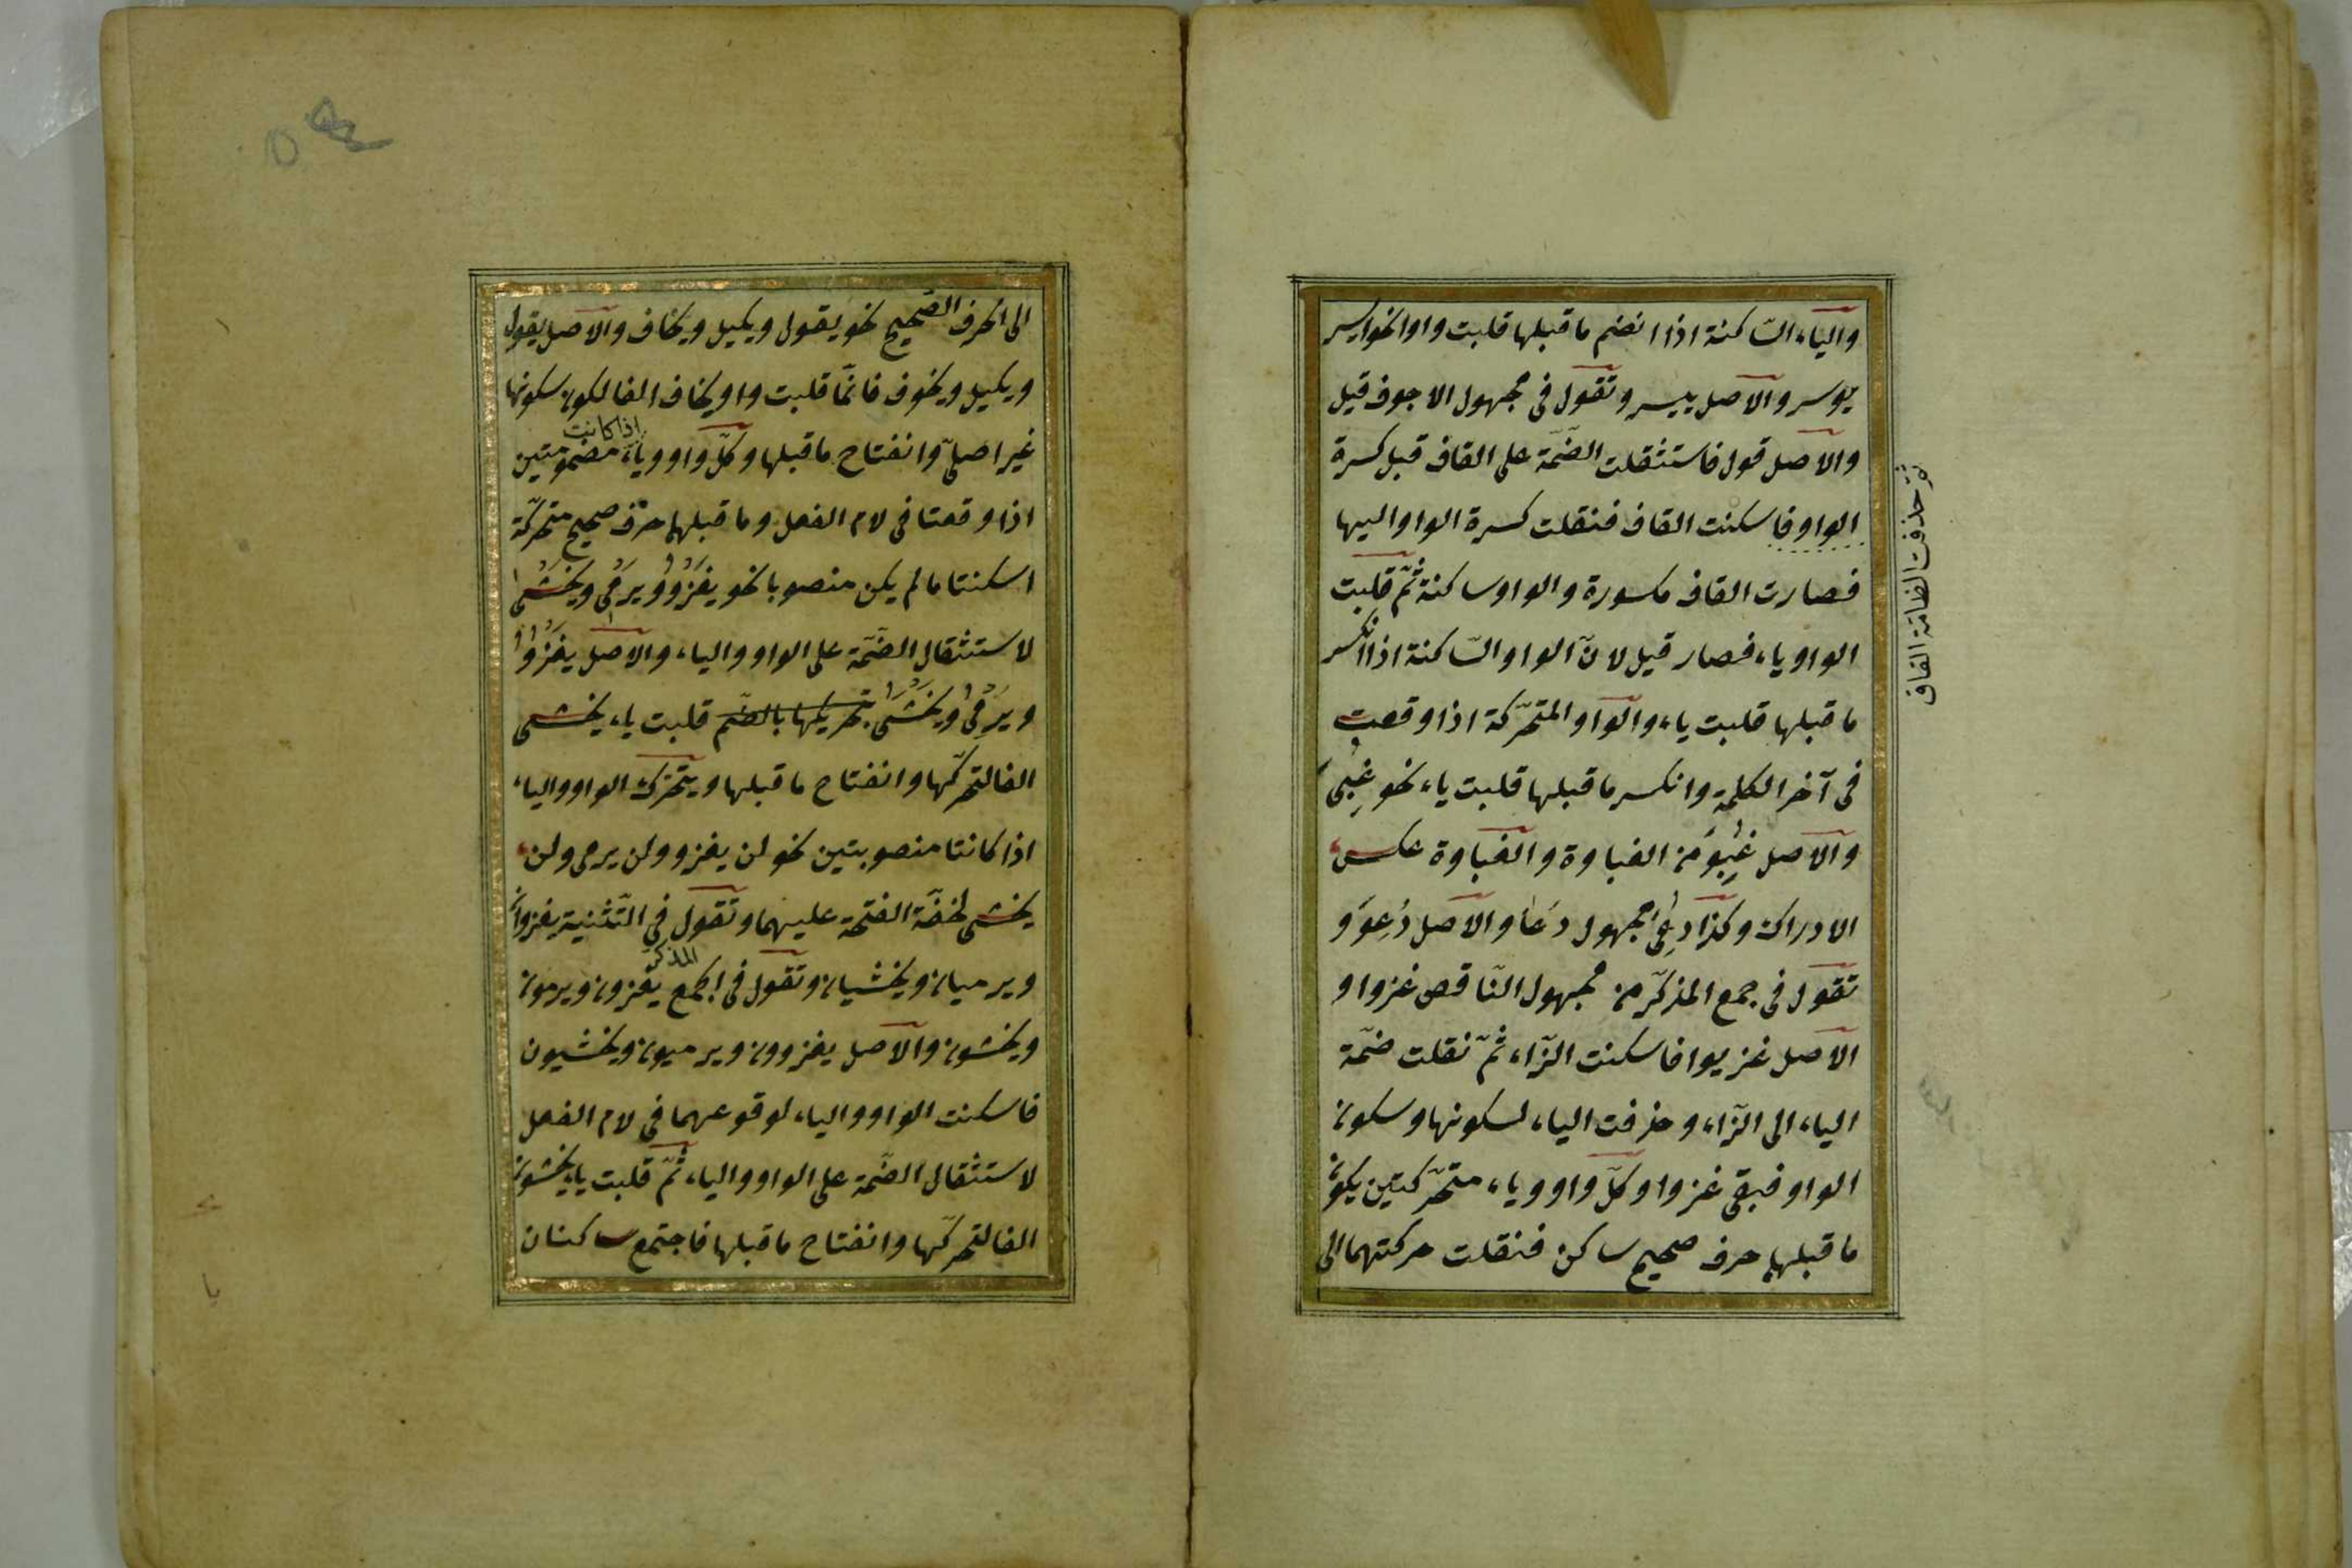 والياء السّاكنة اذا انضم ماقبلها قلبت واوا نحو ايسر
يوسر والاصل ييسر وتقول فى مجهول الاجوف قيل
والاصل قول فاستثقلت الضّمّة على القاف قبل كسرة
الواو فاسكنت القاف فنقلت كسرة الواو اليها
فصارت القاف مكسورة والواو ساكنة ثمّ قلبت
الواو ياء فصار قيل لانّ الواو السّاكنة اذا انكسر
ماقبلها قلبت ياء والواو المتحرّكة اذا وقعت
فى آخر الكلمة وانكسر ماقبلها قلبت ياء نحو غَبِىَ
والاصل غَبِوَ من الغباوة والغباوة عكس
الادراك وكذا دُعِىَ مجهول دَعَا والاصل دُعِوَ و
تقول فى جمع المذكّر من مجهول النّاقص غزوا و
الاصل غزيوا فاسكنت الزّاء ثمّ نقلت ضمّة
الياء الى الزّاء وحذفت الياء لسكونها وسكون
الواو فبقى غزوا وكلّ واو وياء متحرّكتين يكون
ماقبلهما حرف صحيح ساكن فنقلت حركتهما الى
القاف
الى الحرف الصّحيح نحو يقول ويكيل ويخاف والاصل يقول
ويكيل ويخوف فانّما قلبت واو يخاف الفا لكون سكونها
غير اصلىّ وانفتاح ماقبلها وكلّ واو وياء مضمومتين
اذا كانت
اذا وقعتا فى لام الفعل وماقبلهما حرف صحيح متحرّكة
اسكنتا مالم يكن منصوبا نحو يغزو ويرمى ويخشى
لاستثقال الضّمّة على الواو والياء والاصل يغزو
ويرمى ويخشى بتحريكها بالضّم قلبت ياء يخشى
الفا لتحرّكها وانفتاح ماقبلها ويتحرّك الواو والياء
اذا كانتا منصوبتين نحو لن يغزو ولن يرمى ولن
يخشى لخفّة الفتحة عليهما وتقول فى التّثنية يغزوان
ويرميان ويخشيان وتقول فى الجمع المذكر يغزون ويرمون
ويخشون والاصل يغزوون ويرميون ويخشيون
فاسكنت الواو والياء لوقوعهما فى لام الفعل
لاستثقال الضّمّة على الواو والياء ثمّ قلبت ياء يخشون
الفا لتحرّكها وانفتاح ماقبلها فاجتمع ساكنان